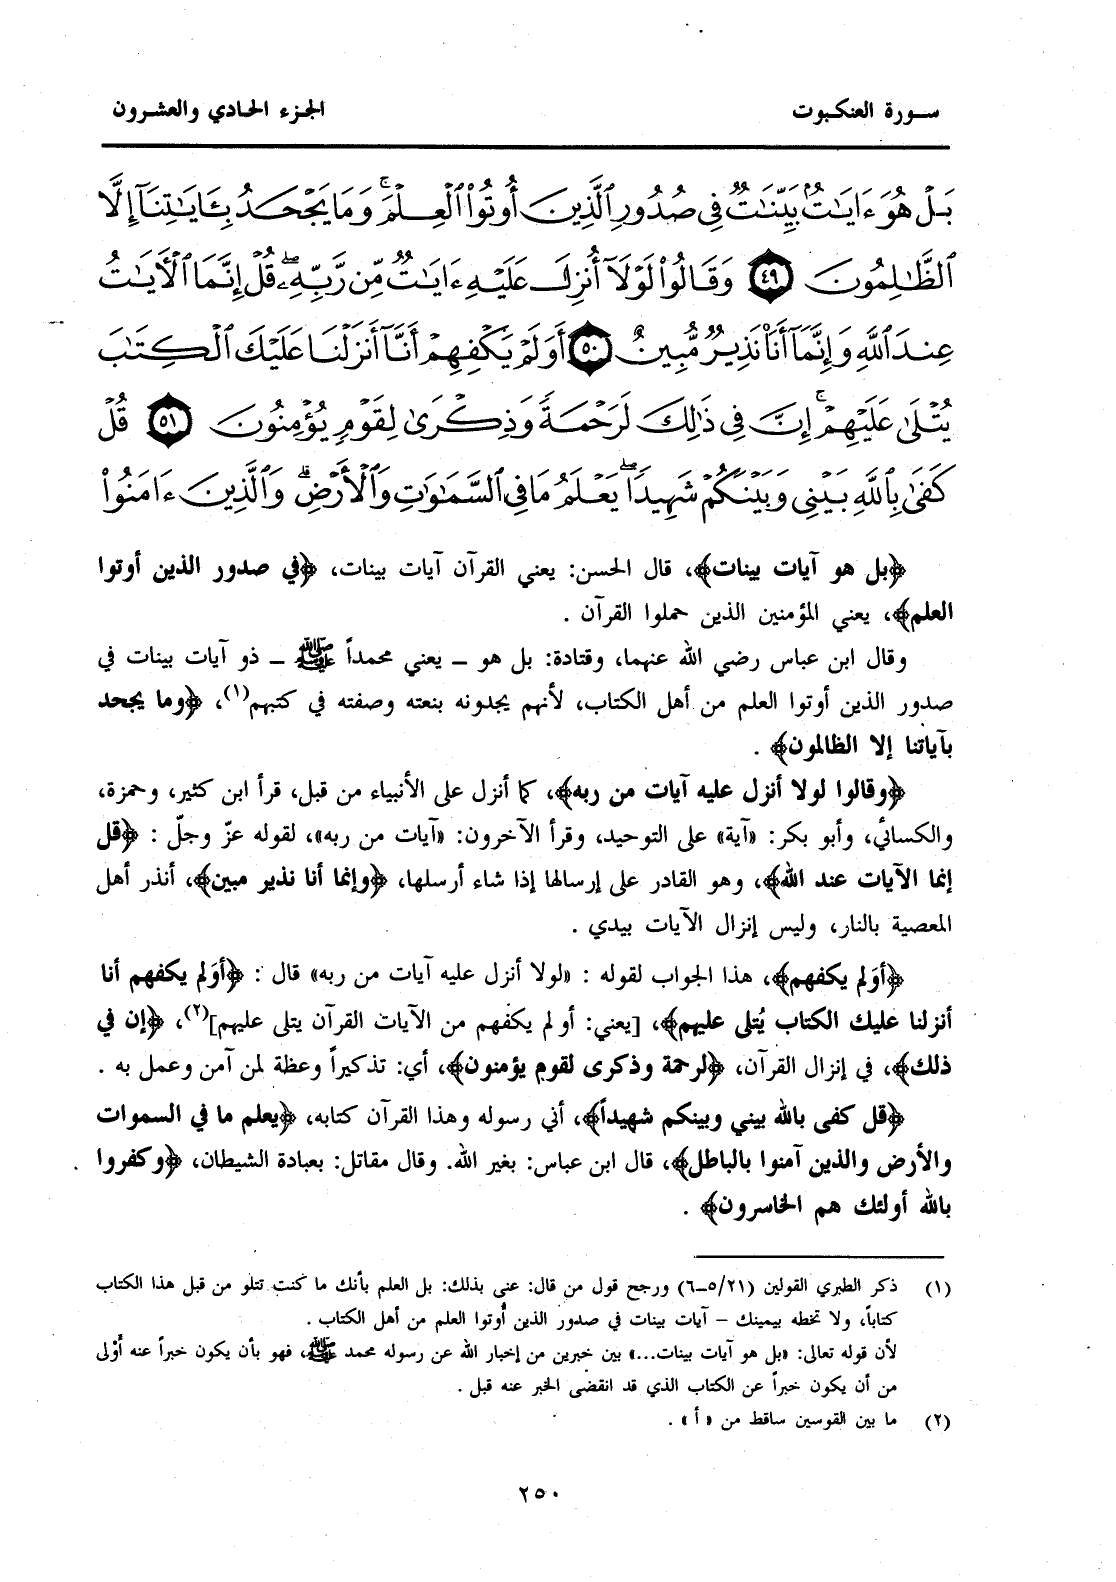 سورة العنكبوت
الجزء الحادي والعشرون
بَلْ هُوَ ءَايَـٰتٌۢ بَيِّنَـٰتٌ فِى صُدُورِ ٱلَّذِينَ أُوتُوا۟ ٱلْعِلْمَ ۚ وَمَا يَجْحَدُ بِـَٔايَـٰتِنَآ إِلَّا
ٱلظَّـٰلِمُونَ ٤٩ وَقَالُوا۟ لَوْلَآ أُنزِلَ عَلَيْهِ ءَايَـٰتٌ مِّن رَّبِّهِۦ ۖ قُلْ إِنَّمَا ٱلْـَٔايَـٰتُ
عِندَ ٱللَّهِ وَإِنَّمَآ أَنَا۠ نَذِيرٌ مُّبِينٌ ٥٠ أَوَلَمْ يَكْفِهِمْ أَنَّآ أَنزَلْنَا عَلَيْكَ ٱلْكِتَـٰبَ
يُتْلَىٰ عَلَيْهِمْ ۚ إِنَّ فِى ذَٰلِكَ لَرَحْمَةً وَذِكْرَىٰ لِقَوْمٍ يُؤْمِنُونَ ٥١ قُلْ
كَفَىٰ بِٱللَّهِ بَيْنِى وَبَيْنَكُمْ شَهِيدًا ۖ يَعْلَمُ مَا فِى ٱلسَّمَـٰوَٰتِ وَٱلْأَرْضِ ۗ وَٱلَّذِينَ ءَامَنُوا۟
﴿بل هو آيات بينات﴾، قال الحسن: يعني القرآن آيات بينات، ﴿في صدور الذين أوتوا
العلم﴾، يعني المؤمنين الذين حملوا القرآن .
وقال ابن عباس رضي الله عنهما، وقتادة: بل هو ــ يعني محمداً ﷺ ــ ذو آيات بينات في
صدور الذين أوتوا العلم من أهل الكتاب، لأنهم يجدونه بنعته وصفته في كتبهم(١)، ﴿وما يجحد
بآياتنا إلا الظالمون﴾ .
﴿وقالوا لولا أنزل عليه آيات من ربه﴾، كما أنزل على الأنبياء من قبل، قرأ ابن كثير، وحمزة،
والكسائي، وأبو بكر: «آية» على التوحيد، وقرأ الآخرون: «آيات من ربه»، لقوله عزّ وجلّ : ﴿قل
إنما الآيات عند الله﴾، وهو القادر على إرسالها إذا شاء أرسلها، ﴿وإنما أنا نذير مبين﴾، أنذر أهل
المعصية بالنار، وليس إنزال الآيات بيدي .
﴿أوَلم يكفهم﴾، هذا الجواب لقوله : «لولا أنزل عليه آيات من ربه» قال : ﴿أوَلم يكفهم أنا
أنزلنا عليك الكتاب يُتلى عليهم﴾، [يعني: أو لم يكفهم من الآيات القرآن يتلى عليهم](٢)، ﴿إن في
ذلك﴾، في إنزال القرآن، ﴿لرحمة وذكرى لقوم يؤمنون﴾، أي: تذكيراً وعظة لمن آمن وعمل به .
﴿قل كفى بالله بيني وبينكم شهيداً﴾، أني رسوله وهذا القرآن كتابه، ﴿يعلم ما في السموات
والأرض والذين آمنوا بالباطل﴾، قال ابن عباس: بغير الله. وقال مقاتل: بعبادة الشيطان، ﴿وكفروا
بالله أولئك هم الخاسرون﴾ .
(١) ذكر الطبري القولين (٢١/٥ــ٦) ورجح قول من قال: عنى بذلك: بل العلم بأنك ما كنت تتلو من قبل هذا الكتاب
كتاباً، ولا تخطه بيمينك – آيات بينات في صدور الذين أُوتوا العلم من أهل الكتاب .
لأن قوله تعالى: «بل هو آيات بينات...» بين خبرين من إخبار الله عن رسوله محمد ﷺ، فهو بأن يكون خبراً عنه أَوْلى
من أن يكون خبراً عن الكتاب الذي قد انقضى الخبر عنه قبل .
(٢) ما بين القوسين ساقط من « أ » .
٢٥٠